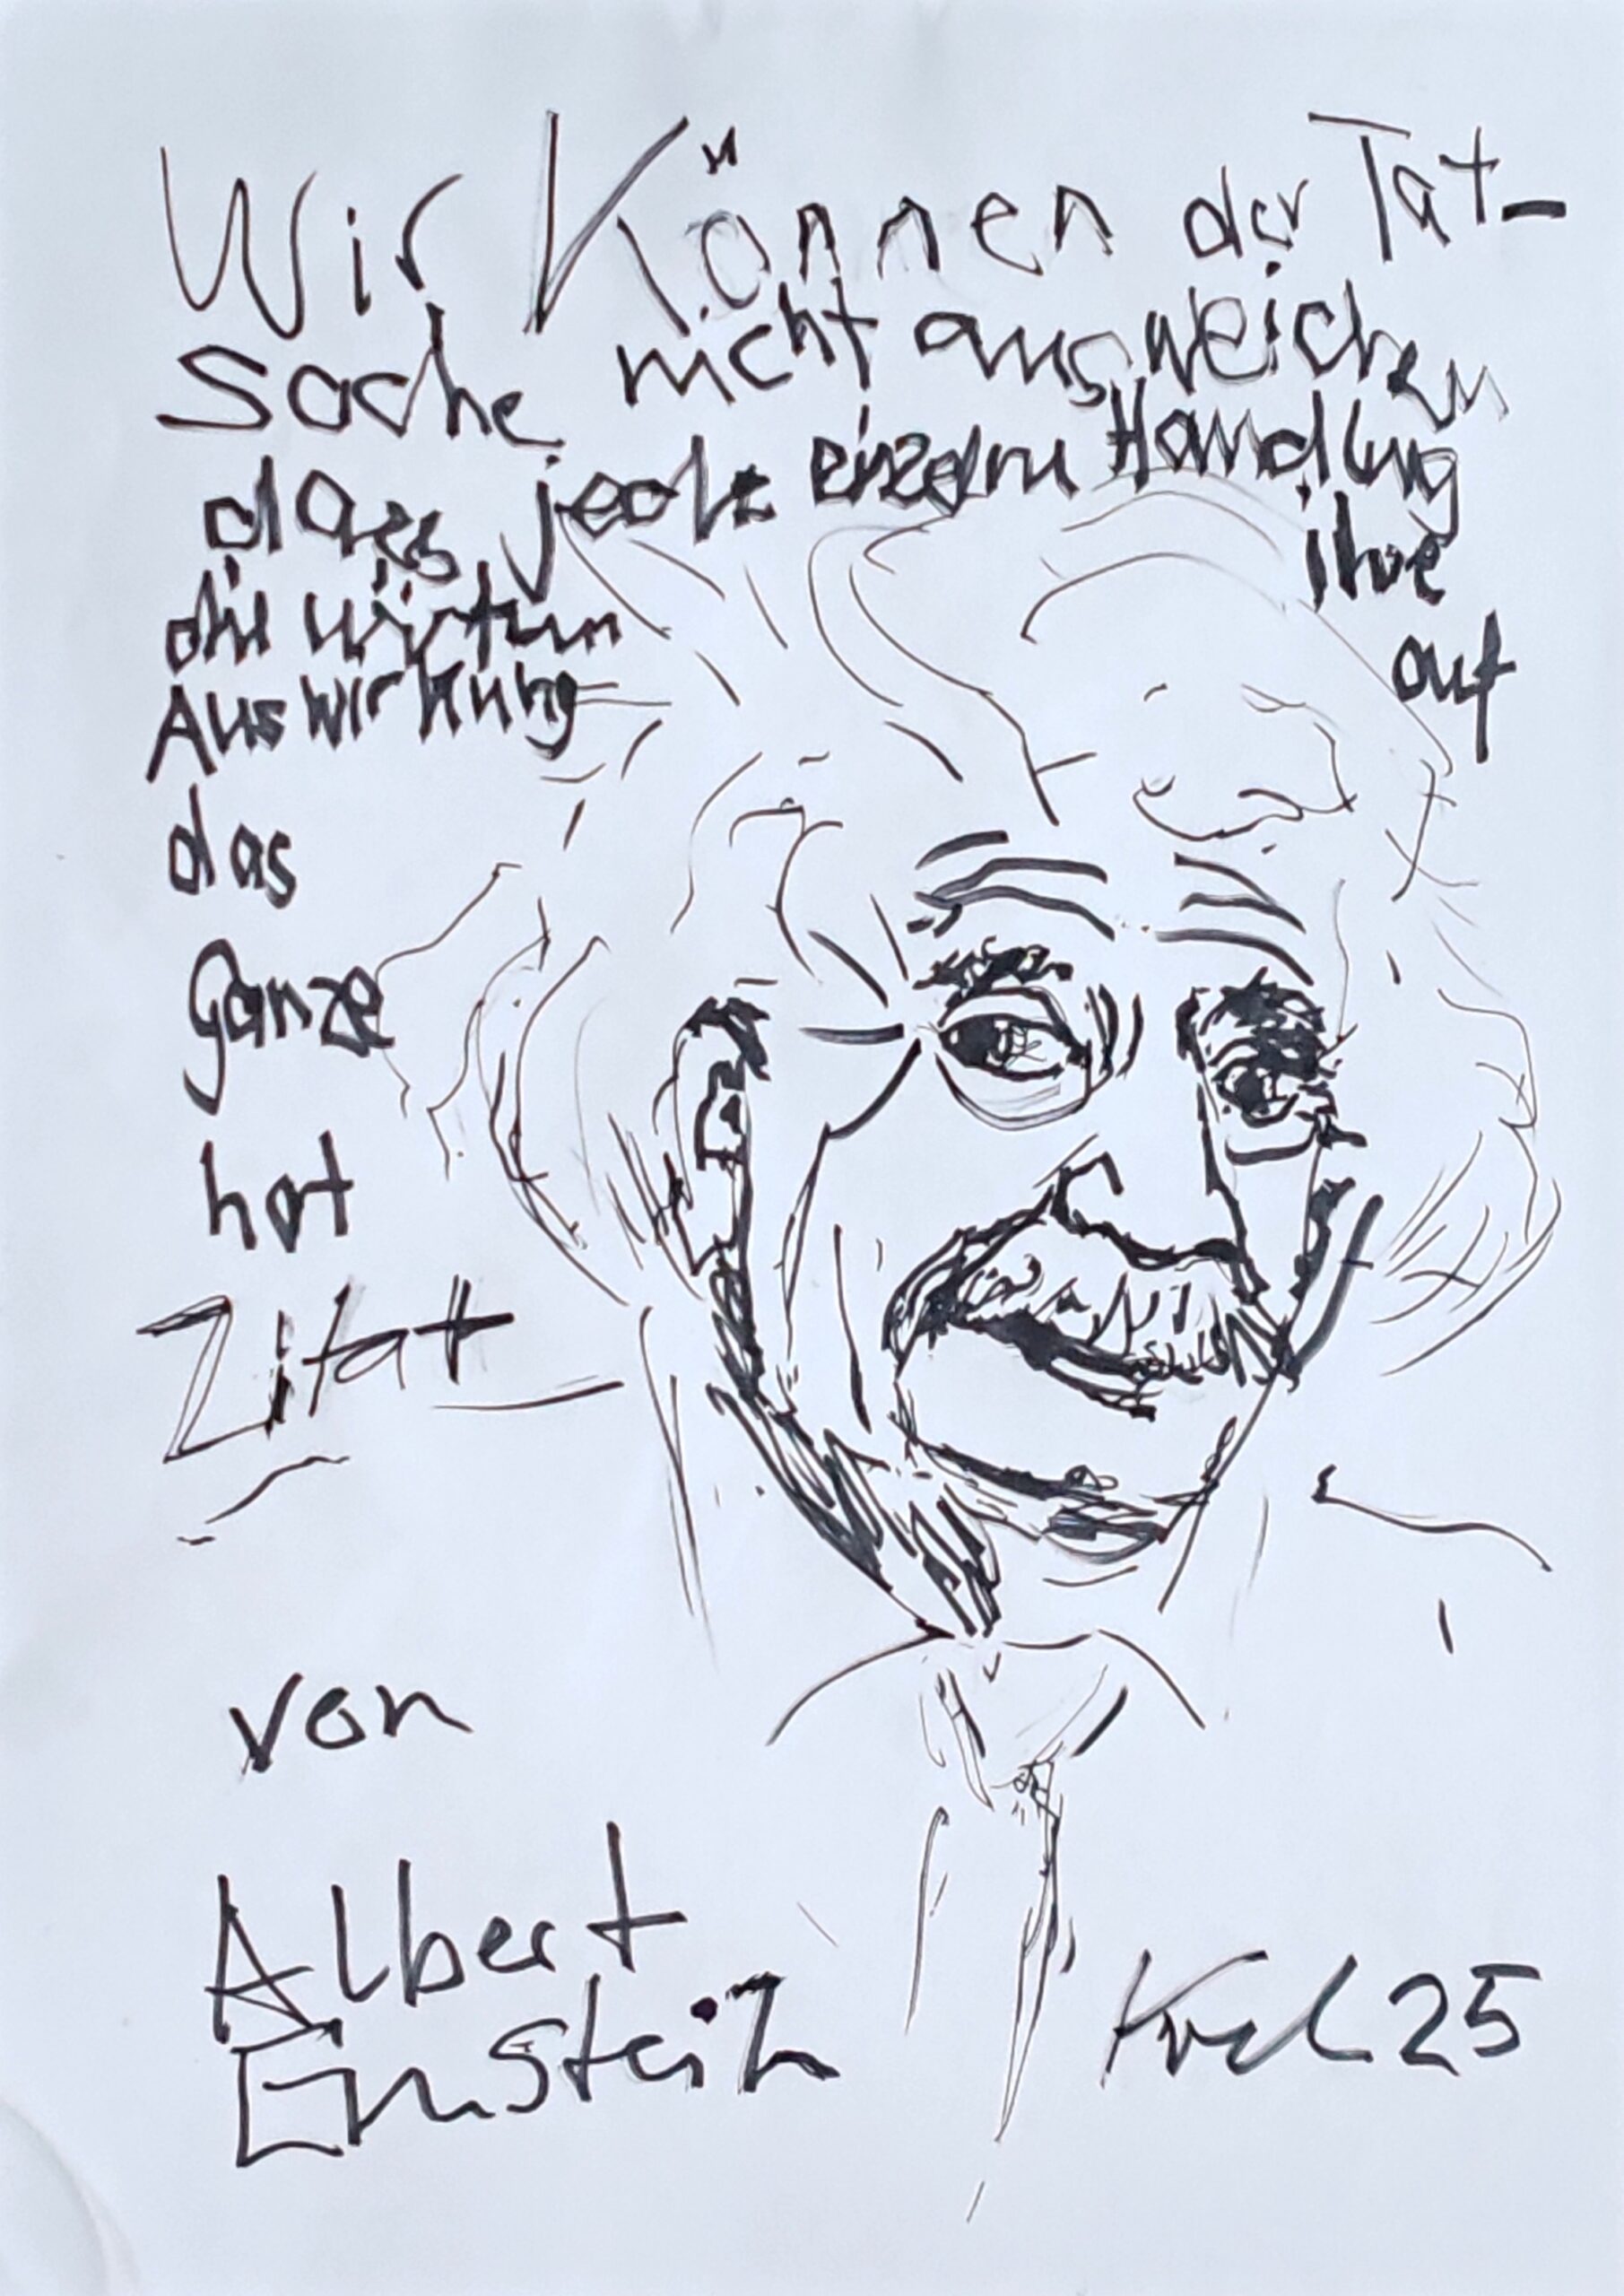 Wir Können der Tat-
sache nicht ausweichen
dass jede einzelne Handlung
die wir tun ihre
Auswirkung auf
das
Ganze
hat
Zitat
von
Albert
Einstein
25